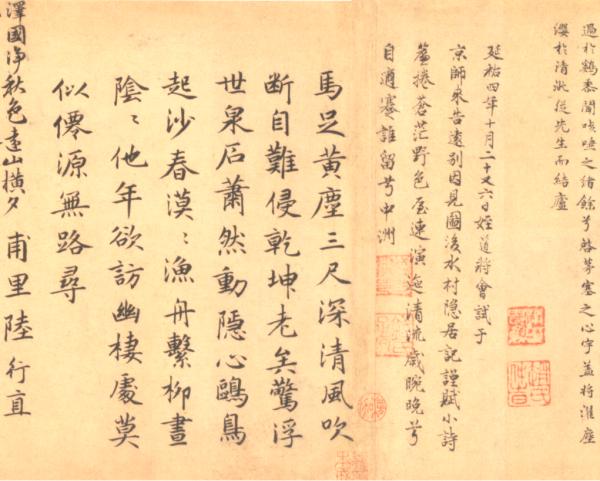 過於鷄黍間咳唾之緒餘兮啓茅塞之心宇蓋將濯塵
纓於清泚從先生而結廬
延祐四年十月二十又六日姪道將會試于
京師來告遠別因見圖後水村隱居記謹賦小詩
蒼茫野色
清流歲晼晚兮
自適蹇誰留兮中洲
馬足黃塵三尺深清風吹
断自難侵乾坤老矣驚浮
世泉石蕭然動隱心鷗鳥
起沙春漠〻漁舟繫柳晝
陰〻他年欲訪幽棲處莫
似僊源無路尋
甫里陸行直
澤國淨秋色遠山橫夕